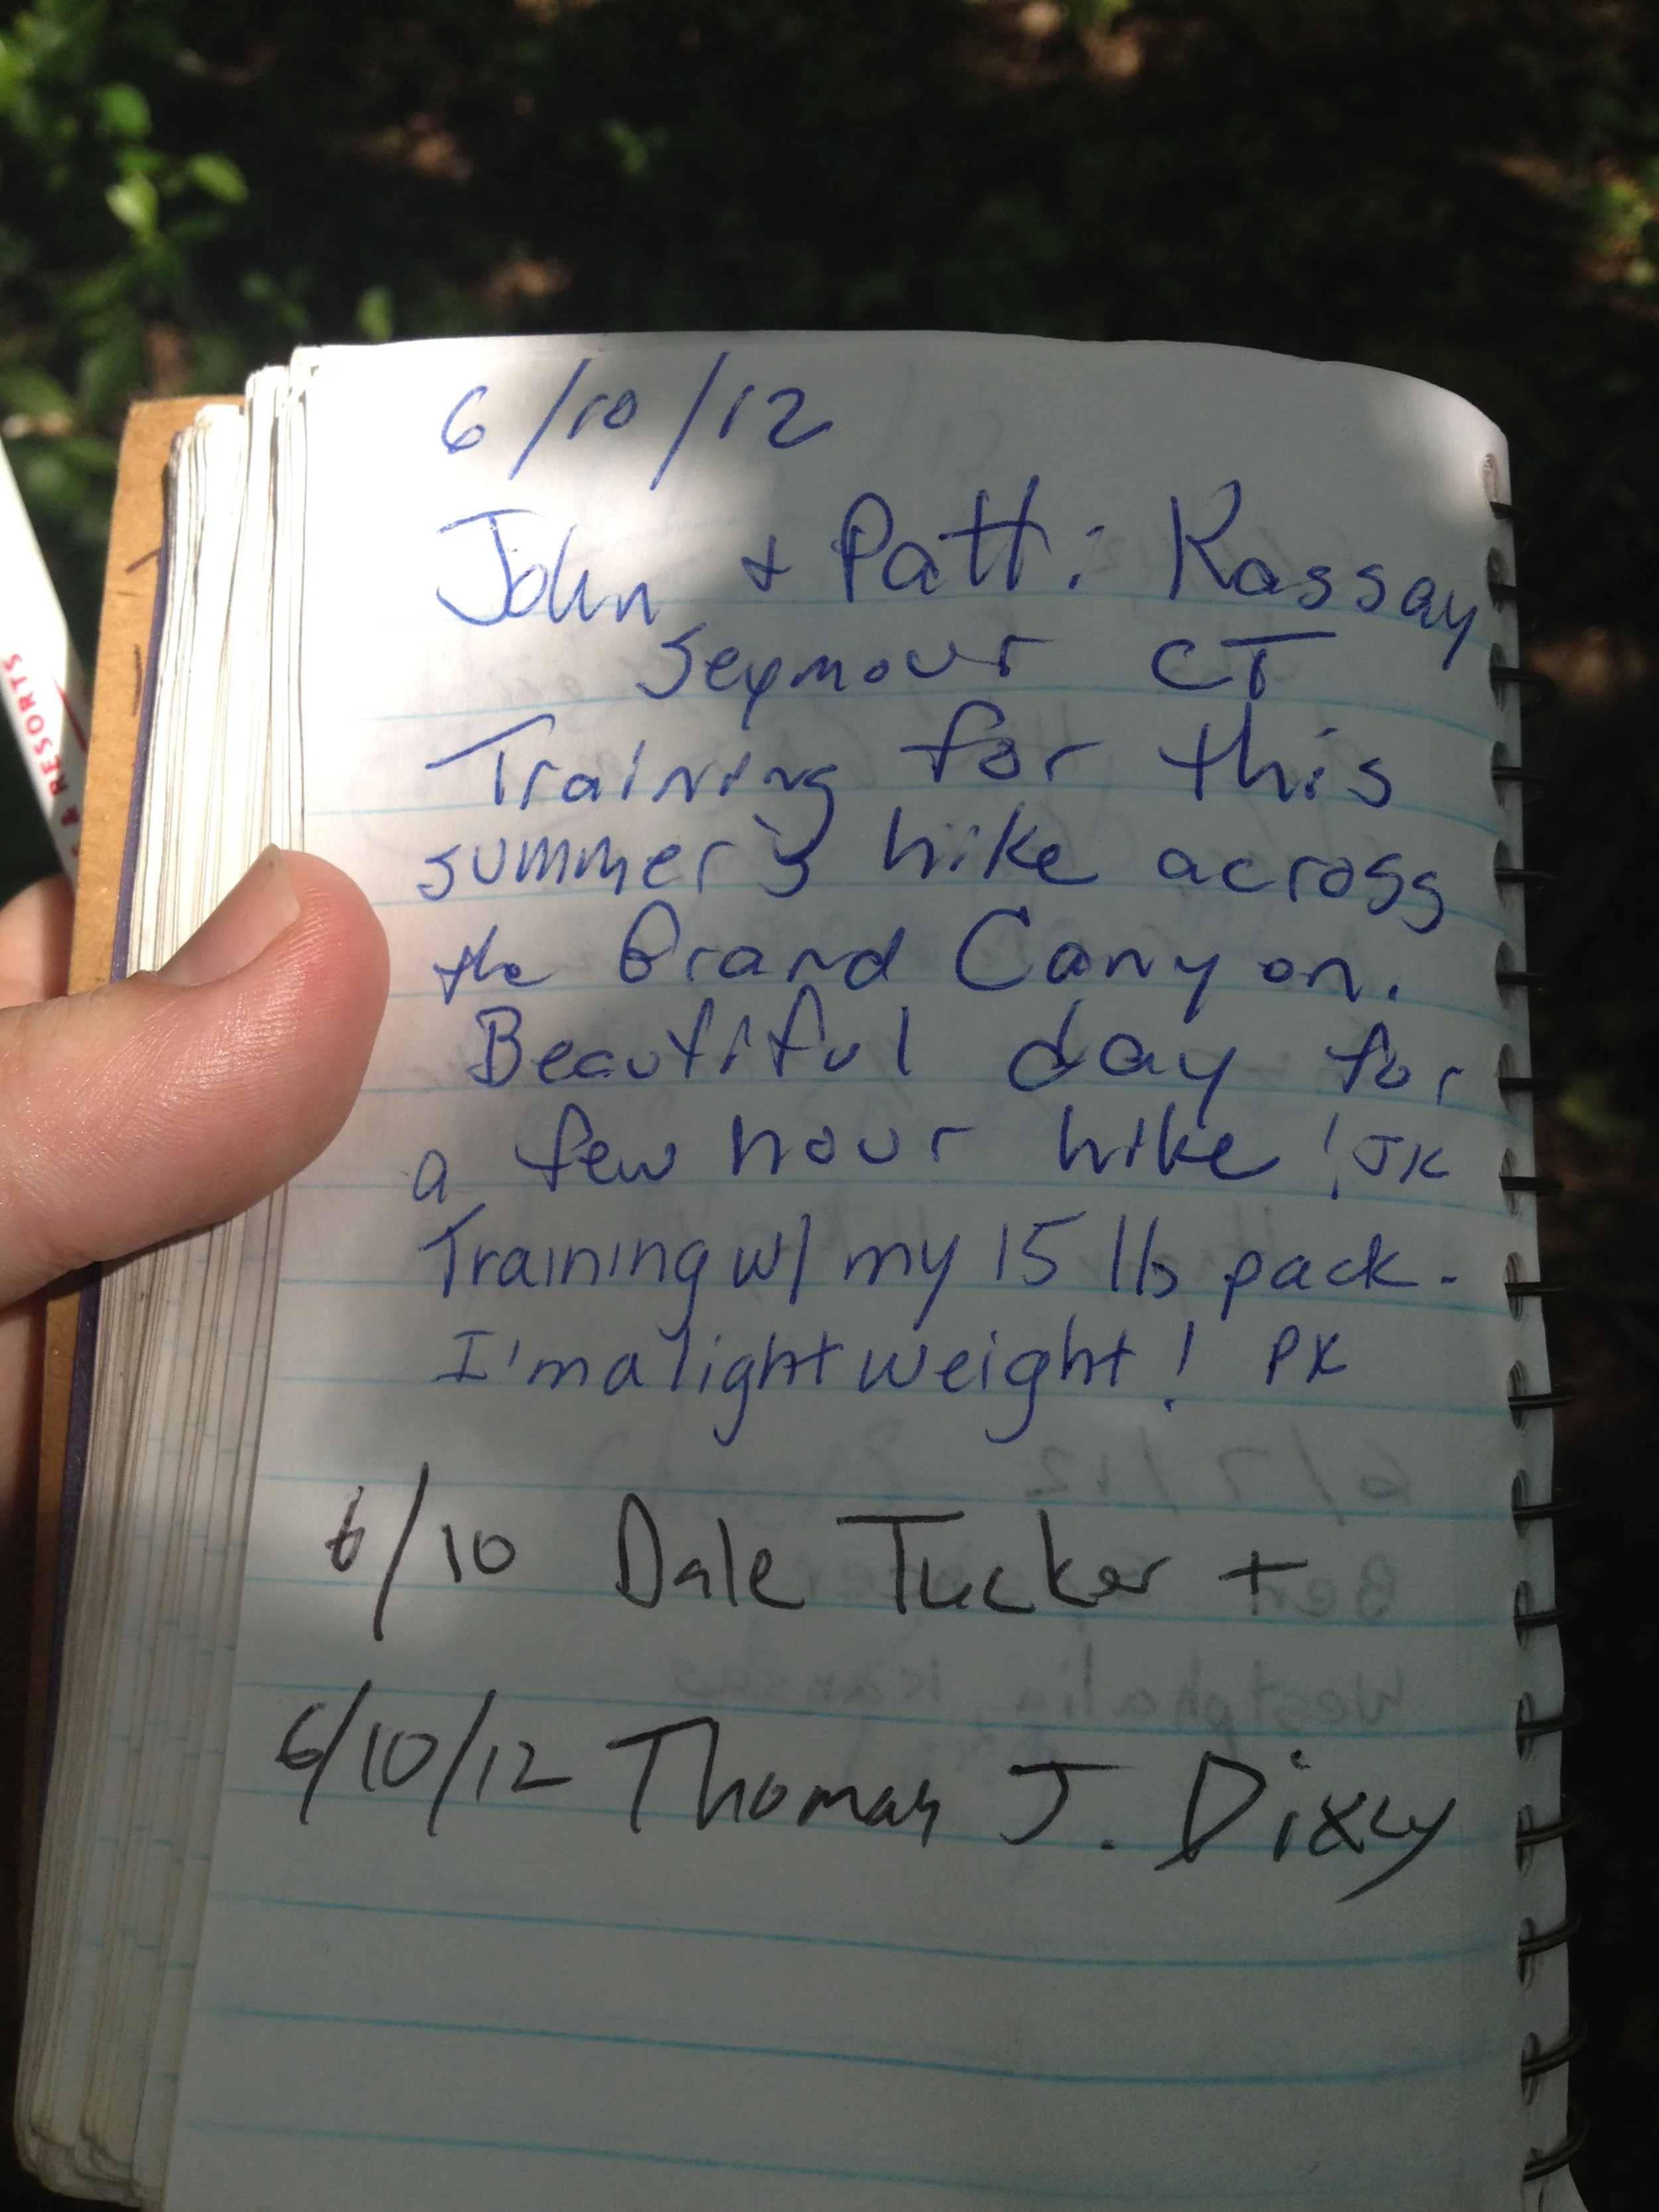 6/10/12
John + Patti Kassay
Seymour CT
Training for this
summer's hike across
the Grand Canyon.
Beautiful day for
a few hour hike! JK
Training w/ my 15 lb pack.
I'm a lightweight! PK
6/10 Dale Tucker +
6/10/12 Thomas J. Dixey
& RESORTS
6/7/12
Ben
Westphalia, Kansas